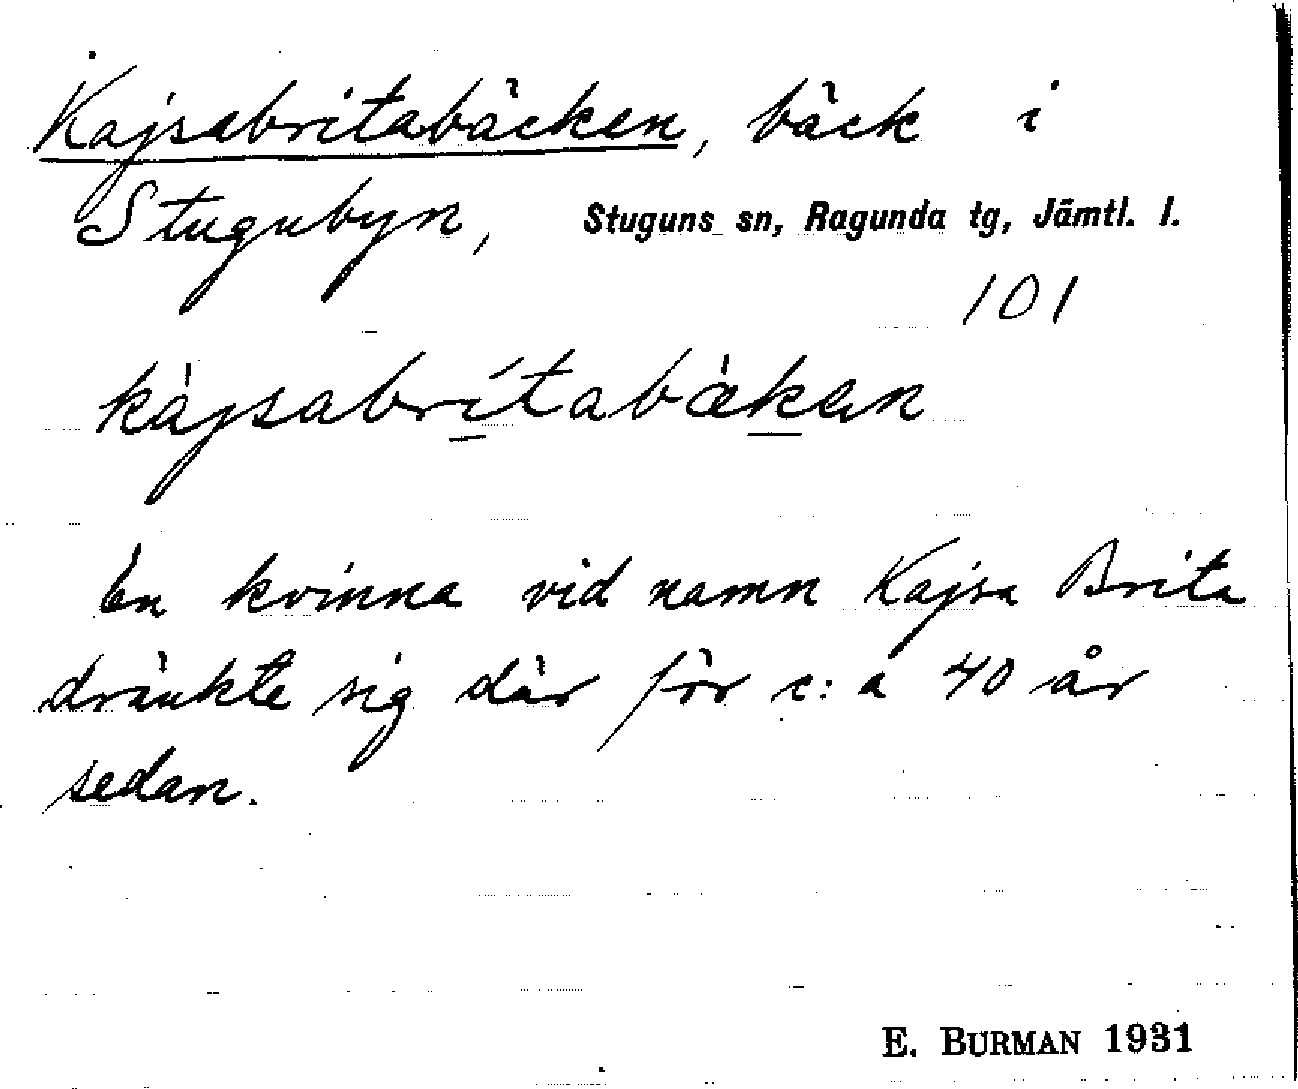 Kajsabritabäcken, bäck i
Stugubyn, Stuguns sn, Ragunda tg, Jämtl. l.
101
kàjsabrítabækan
En kvinna vid namn Kajsa Brita
dränkte sig där för c:a 40 år
sedan.
E. BURMAN 1931